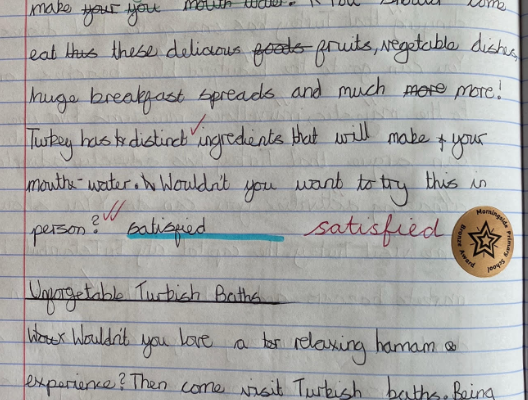 make your you mouth water. If you should come
eat this these delicious foods fruits, vegetable dishes,
huge breakfast spreads and much more more!
Turkey has distinct ingredients that will make your
mouth-water. Wouldn't you want to try this in
person? satisfied satisfied
Morningside Primary School
Award
Unforgetable Turkish Baths
Wouldn't you love a relaxing hamam
experience? Then come visit Turkish baths. Being